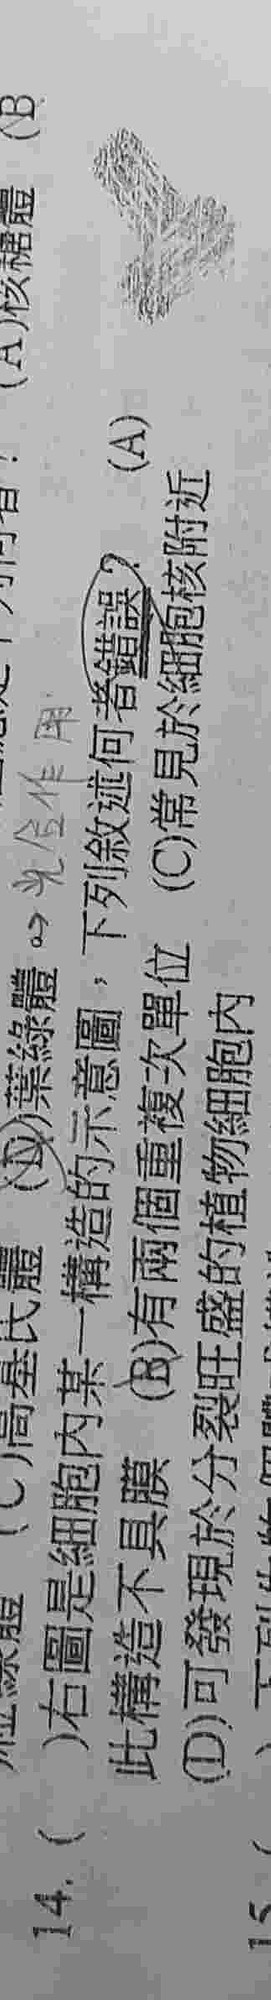 (A)核糖體 (B
粒線體 (C)高基氏體 (D)葉綠體 → 光合作用
14. ( )右圖是細胞內某一構造的示意圖，下列敘述何者錯誤？ (A)
此構造不具膜 (B)有兩個重複次單位 (C)常見於細胞核附近
(D)可發現於分裂旺盛的植物細胞內
15. ( )下列